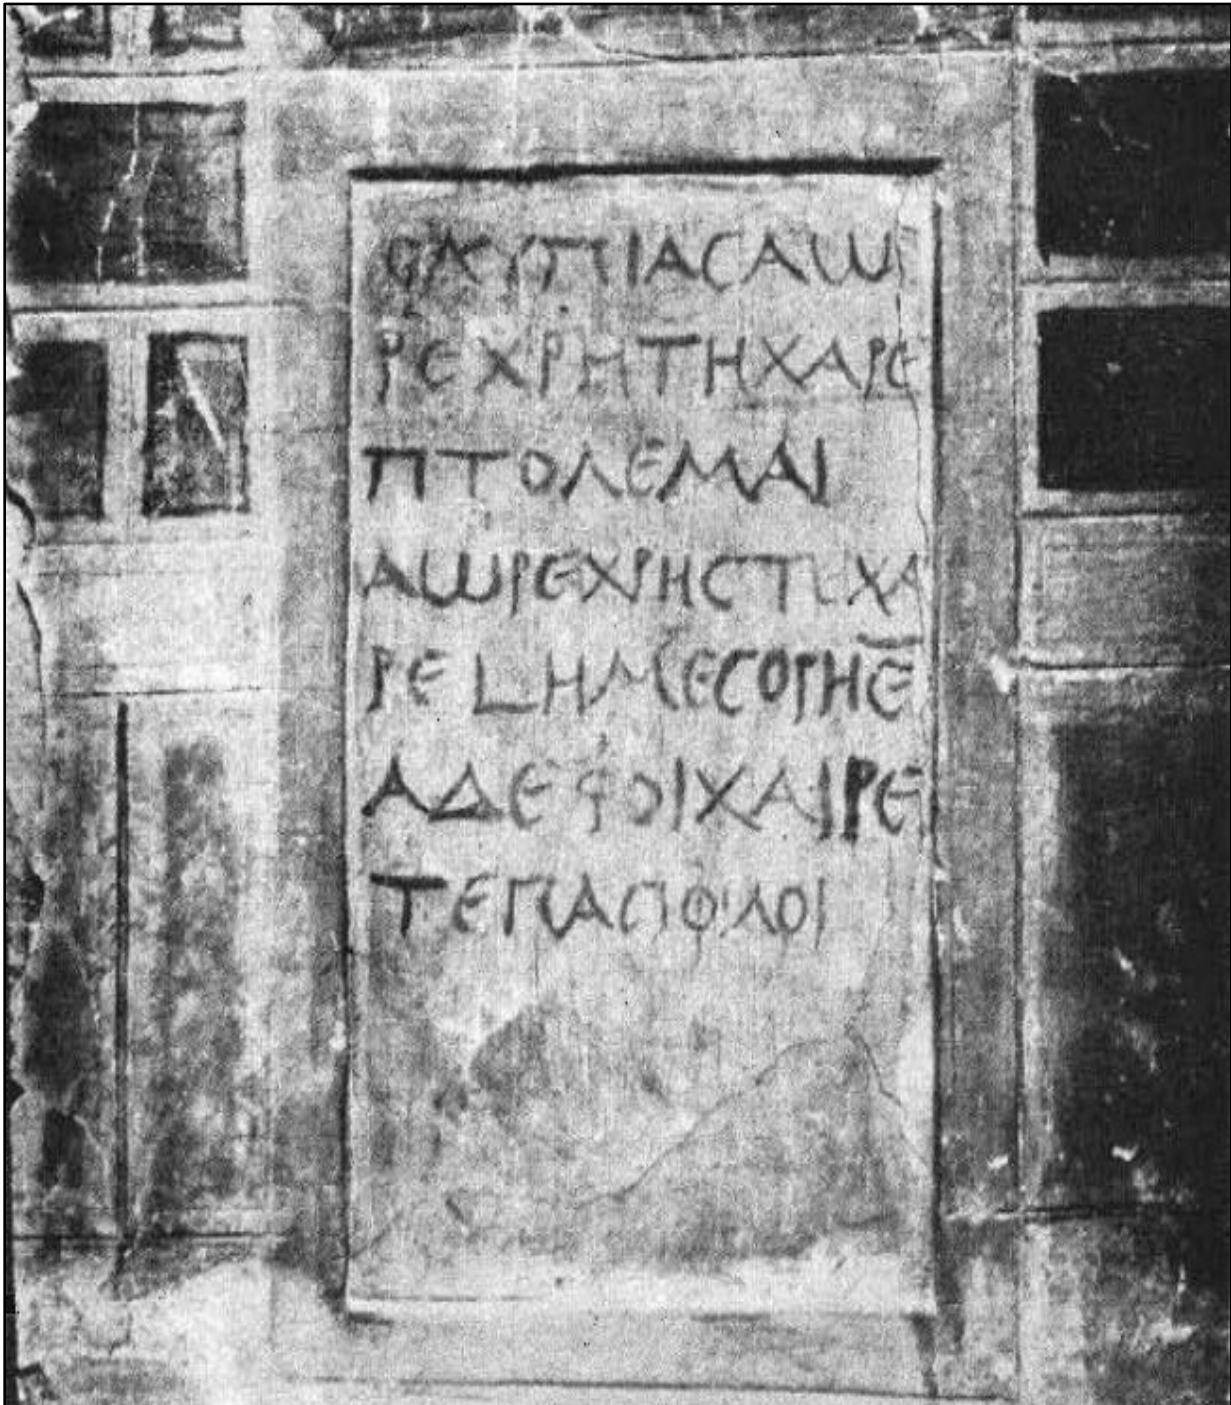 ΕΛΥΠΙΑϹΑΩΡ
ΡΕΧΡΗΤΗΧΑΡΕ
ΠΤΟΛΕΜΑΙ
ΑΩΡΕΧΡΗϹΤΕΧΑ
ΡΕLΗΜΕϹΟΡΗΕ̅
ΑΔΕΦΟΙΧΑΙΡΕ
ΤΕΠΑΠΦΙΛΟΙ